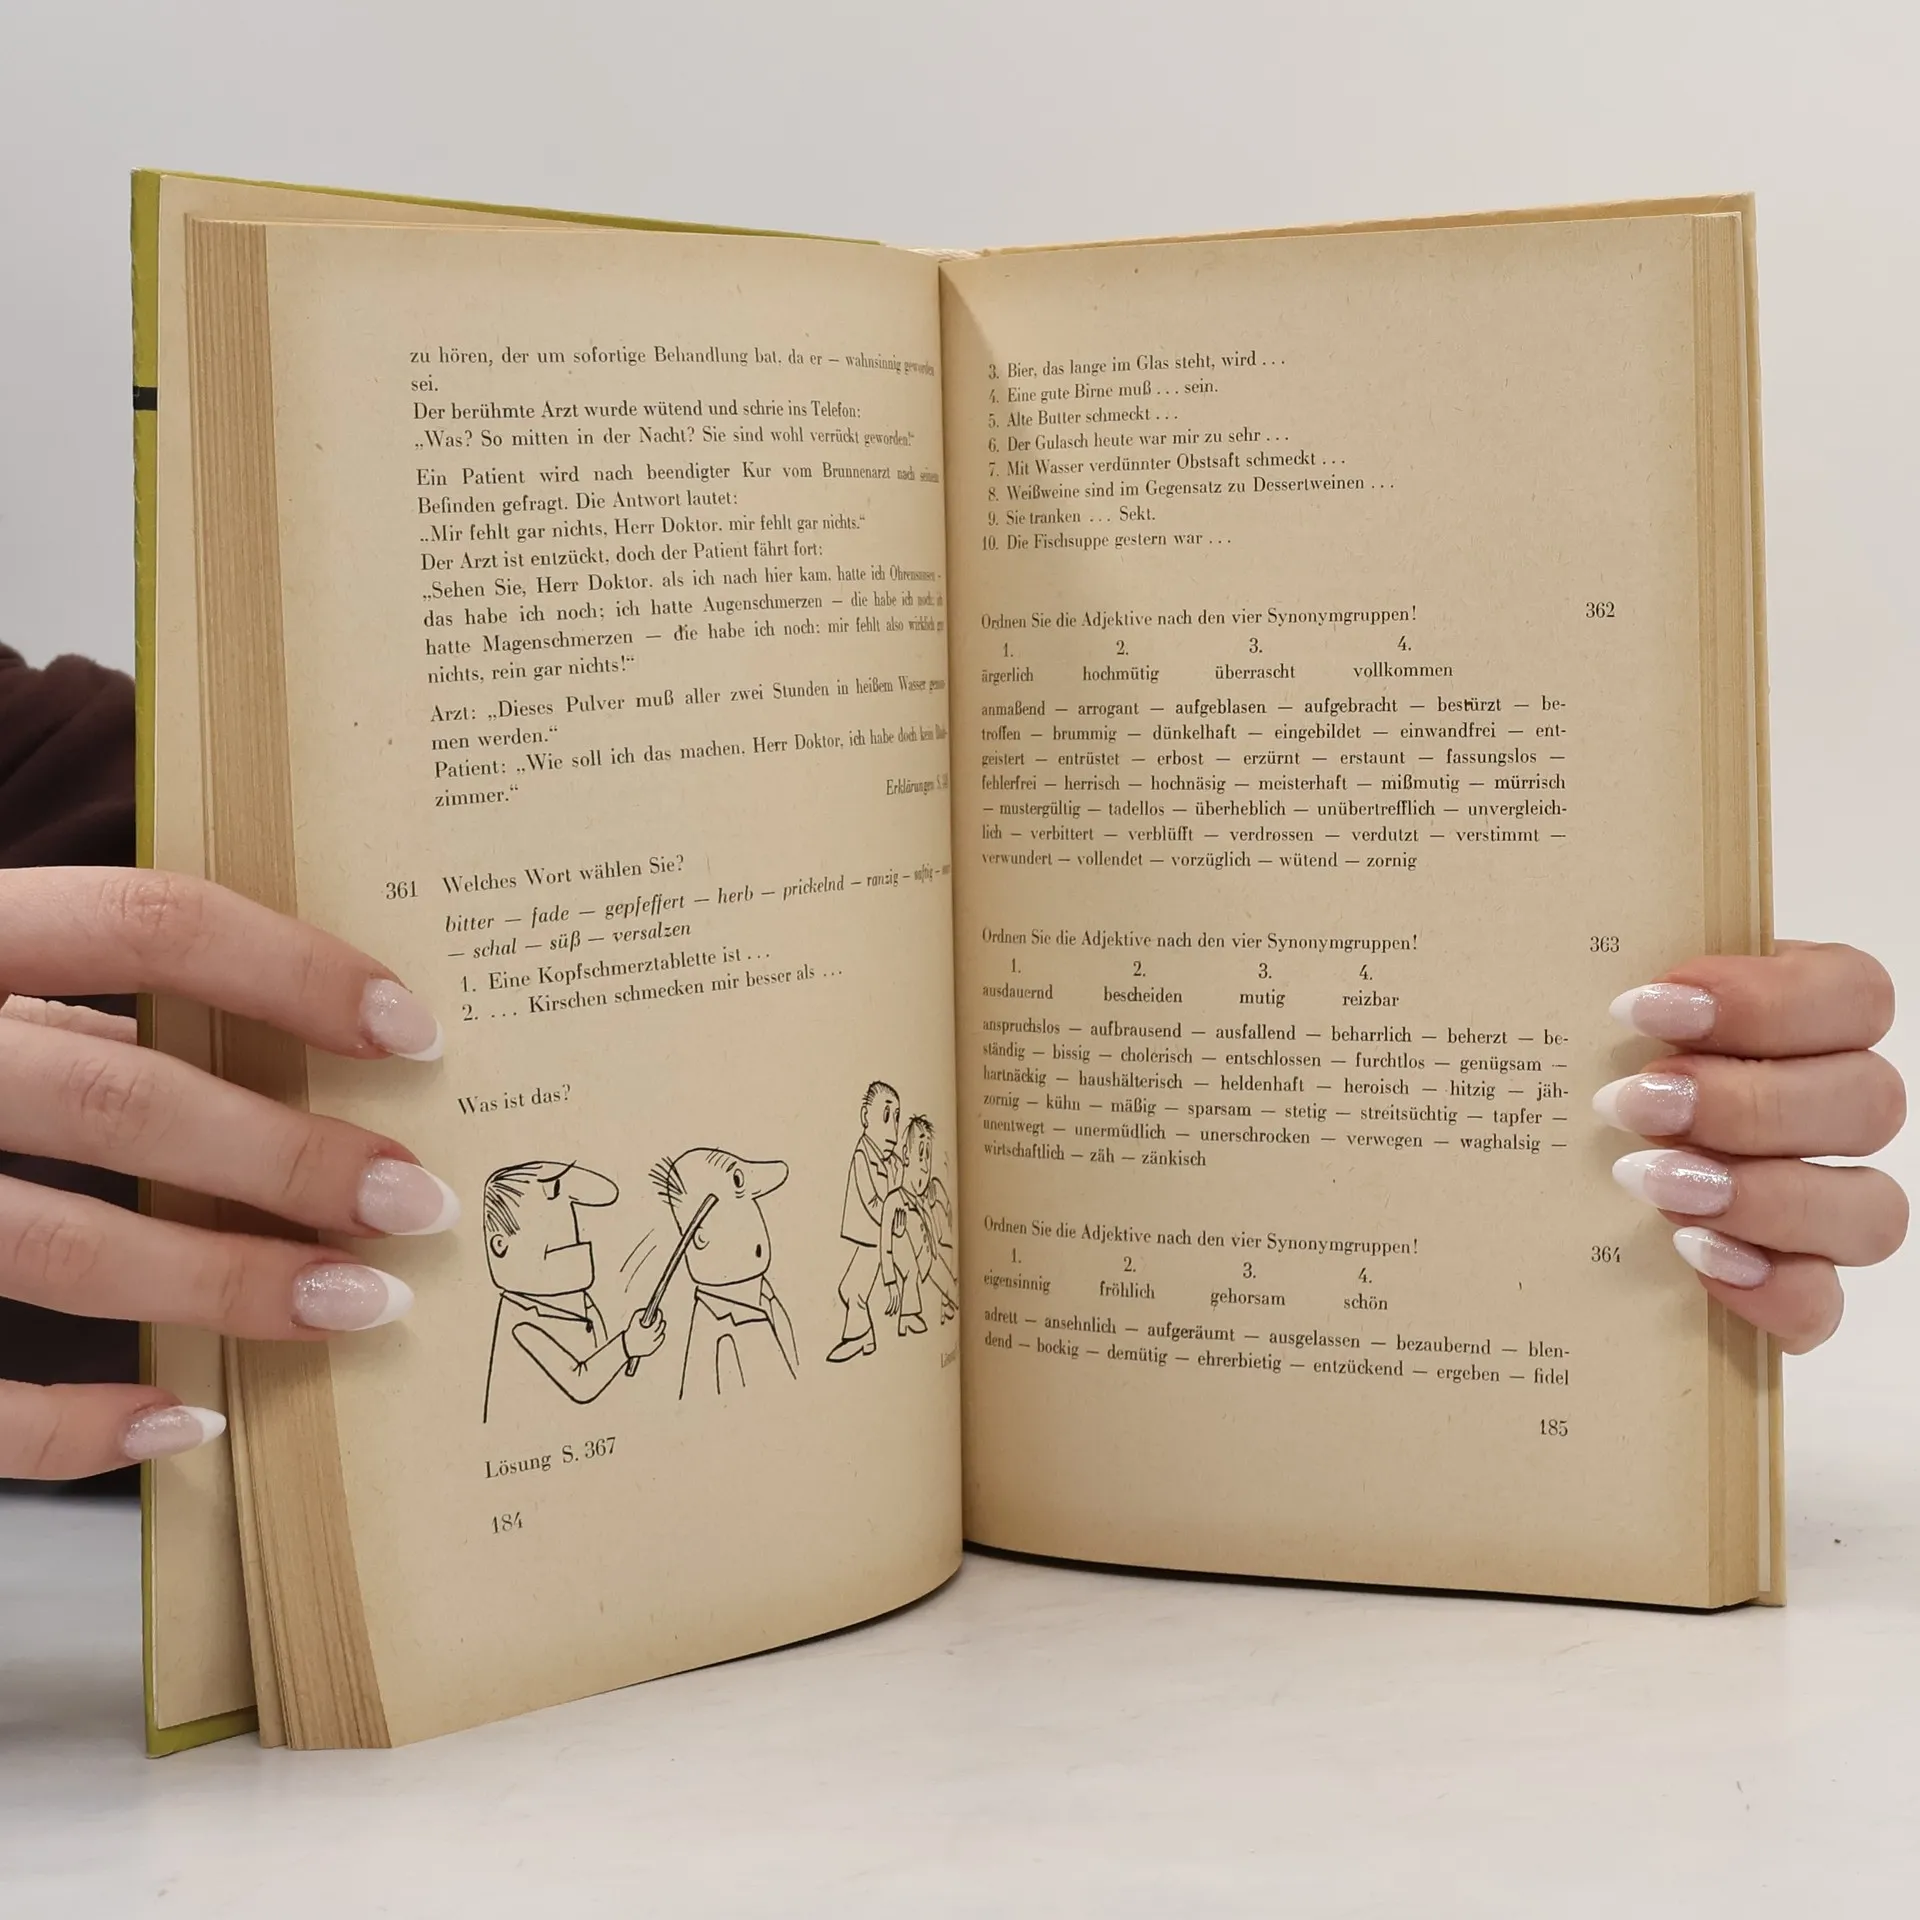 zu hören, der um sofortige Behandlung bat, da er – wahnsinnig geworden
sei.
Der berühmte Arzt wurde wütend und schrie ins Telefon:
„Was? So mitten in der Nacht? Sie sind wohl verrückt geworden!“
Ein Patient wird nach beendigter Kur vom Brunnenarzt nach seinem
Befinden gefragt. Die Antwort lautet:
„Mir fehlt gar nichts, Herr Doktor, mir fehlt gar nichts.“
Der Arzt ist entzückt, doch der Patient fährt fort:
„Sehen Sie, Herr Doktor, als ich nach hier kam, hatte ich Ohrensausen –
das habe ich noch; ich hatte Augenschmerzen – die habe ich noch; ich
hatte Magenschmerzen – die habe ich noch; mir fehlt also wirklich gar
nichts, rein gar nichts!“
Arzt: „Dieses Pulver muß aller zwei Stunden in heißem Wasser genom-
men werden.“
Patient: „Wie soll ich das machen, Herr Doktor, ich habe doch kein Bade-
zimmer.“
Erklärungen S.
361 Welches Wort wählen Sie?
bitter – fade – gepfeffert – herb – prickelnd – ranzig – saftig –
– schal – süß – versalzen
1. Eine Kopfschmerztablette ist ...
2. ... Kirschen schmecken mir besser als ...
Was ist das?
Lösung S. 367
184
3. Bier, das lange im Glas steht, wird ...
4. Eine gute Birne muß ... sein.
5. Alte Butter schmeckt ...
6. Der Gulasch heute war mir zu sehr ...
7. Mit Wasser verdünnter Obstsaft schmeckt ...
8. Weißweine sind im Gegensatz zu Dessertweinen ...
9. Sie tranken ... Sekt.
10. Die Fischsuppe gestern war ...
Ordnen Sie die Adjektive nach den vier Synonymgruppen! 362
1. 2. 3. 4.
ärgerlich hochmütig überrascht vollkommen
anmaßend – arrogant – aufgeblasen – aufgebracht – bestürzt – be-
troffen – brummig – dünkelhaft – eingebildet – einwandfrei – ent-
geistert – entrüstet – erbost – erzürnt – erstaunt – fassungslos –
fehlerfrei – herrisch – hochnäsig – meisterhaft – mißmutig – mürrisch
– mustergültig – tadellos – überheblich – unübertrefflich – unvergleich-
lich – verbittert – verblüfft – verdrossen – verdutzt – verstimmt –
verwundert – vollendet – vorzüglich – wütend – zornig
Ordnen Sie die Adjektive nach den vier Synonymgruppen! 363
1. 2. 3. 4.
ausdauernd bescheiden mutig reizbar
anspruchslos – aufbrausend – ausfallend – beharrlich – beherzt – be-
ständig – bissig – cholerisch – entschlossen – furchtlos – genügsam –
hartnäckig – haushälterisch – heldenhaft – heroisch – hitzig – jäh-
zornig – kühn – mäßig – sparsam – stetig – streitsüchtig – tapfer –
unentwegt – unermüdlich – unerschrocken – verwegen – waghalsig –
wirtschaftlich – zäh – zänkisch
Ordnen Sie die Adjektive nach den vier Synonymgruppen! 364
1. 2. 3. 4.
eigensinnig fröhlich gehorsam schön
adrett – ansehnlich – aufgeräumt – ausgelassen – bezaubernd – blen-
dend – bockig – demütig – ehrerbietig – entzückend – ergeben – fidel
185